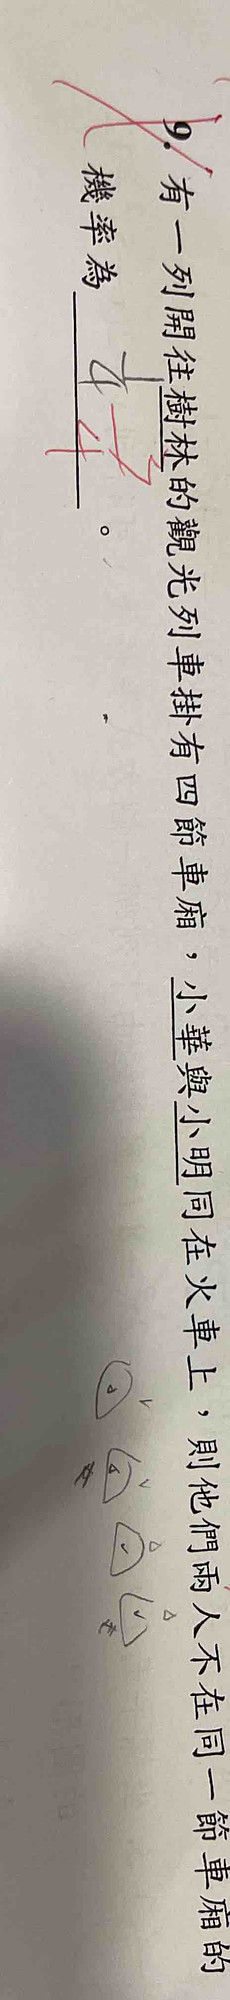 9. 有一列開往樹林的觀光列車掛有四節車廂，小華與小明同在火車上，則他們兩人不在同一節車廂的
機率為 1/4 3/4 。